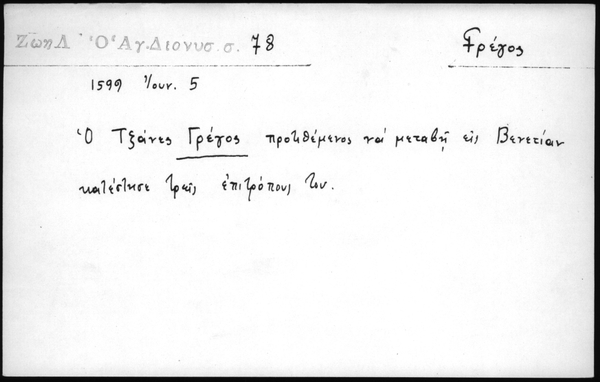 Ζώη Λ. Ὁ Ἅγ. Διονυσ. σ. 78 Γρέγος
1599 Ἰουν. 5
Ὁ Τζάνες Γρέγος προτιθέμενος νά μεταβῇ εἰς Βενετίαν
κατέστησε τρεῖς ἐπιτρόπους του.